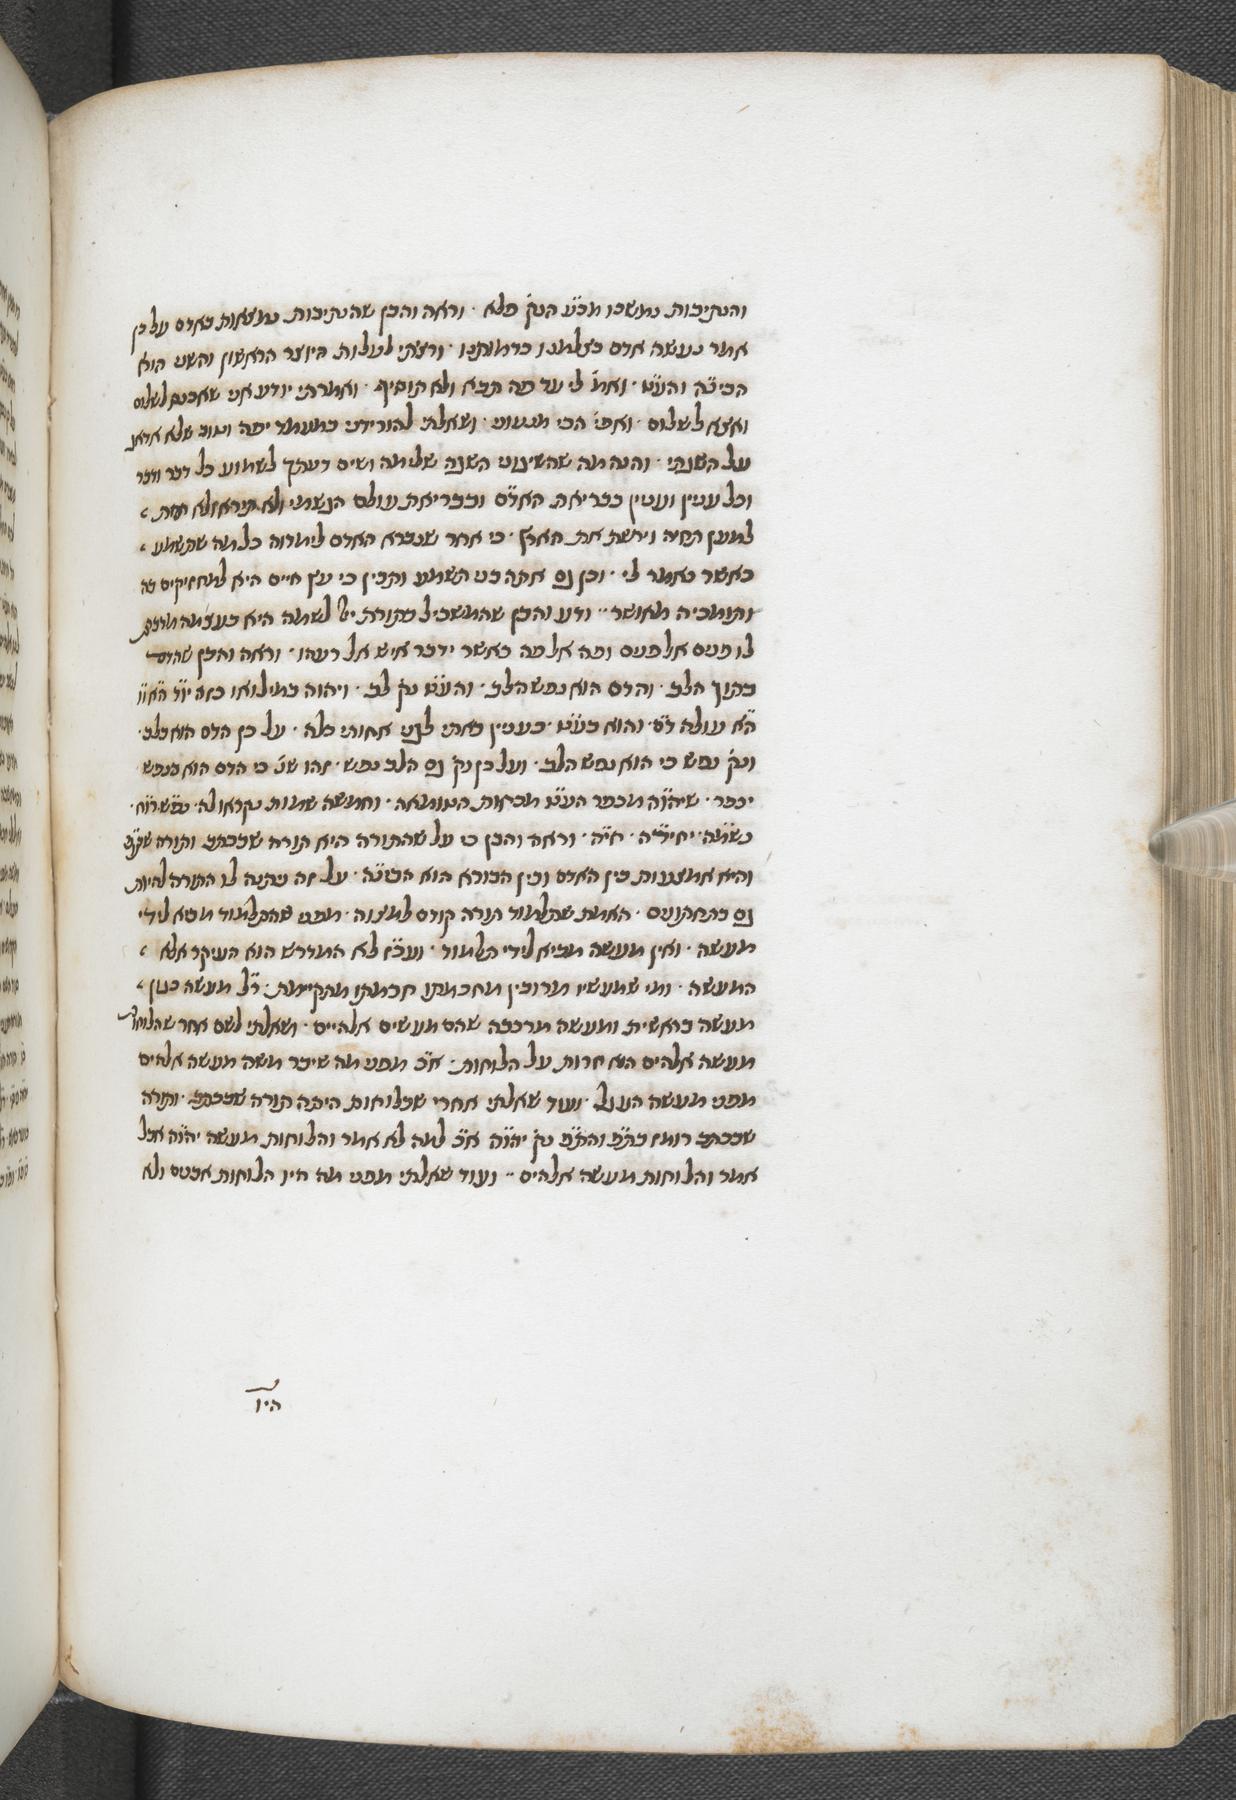 והנתיבות נמשכו מכ״ע הנק׳ פלא · וראה והבן שהנתיבות נמצאות באדם על כן
אמר נעשה אדם בצלמנו כדמותנו · ורצתי לעלות היוצר הראשון והשני הוא
הבינ״ה והע״ט · ואמ׳ לי עד פה תבא ולא תוסיף · ואמרתי יודע אני שאכנס לשלום
ואצא לשלום · ואפי׳ הכי מנעוני · ושאלתי להורידני במעמד יפה וטוב שלא אדאג
על השגתי · והנה מה שהשיגוני השגה שלימה ושים דעתך לשמוע כל דבר ודבר
וכל עניין ועניין בבריאת האד״ם ובבריאת עולם הנשמות ולא תירא ולא תחת
למען תחיה וירשת את הארץ · כי אחר שנברא האדם לימדוה כל מה שתשמע
כאשר נאמר לי · וכן גם אתה בני תשמע ותבין כי עץ חיים היא למחזיקים בה
ותומכיה מאושר ·· ודע והבן שהמשכיל בתורת י״י לשמה היא בעצמה מדברת
לו פנים אל פנים ופה אל פה כאשר ידבר איש אל רעהו · וראה והבן שהדם
בתוך הלב · והדם הוא נפש הלב · והע״ט נק׳ לב · ויהוה במילואו כזה יו״ד ה״א וי״ו
ה״א עולה ד״ם · והוא בע״ט · כעניין באתי לגני אחותי כלה · על כן הדם הוא בלב ·
ונק׳ נפש כי הוא נפש הלב · ועל כן נק׳ גם הלב נפש · זהו שנ׳ כי הדם הוא בנפש
יכפר · שיהו״ה מכפר הע״ט מכיחות הטומאה · וחמשה שמות נקראו לה · נפ״ש רו״ח ·
נשמ״ה · יחיד״ה · חי״ה · וראה והבן כי על שהתורה היא תורה שבכתב ותורה שבע״פ
והיא אמצעות בין האדם ובין הבורא הוא הבינ״ה · על זה ניתנה לו התורה להיות
גם בתחתונים · האמת שתלמוד תורה קודם למצוה · מפני שהתלמוד מביא לידי
מעשה · ואין מעשה מביא לידי תלמוד · ועכ״ז לא המדרש הוא העיקר אלא
המעשה · ומי שמעשיו מרובין מחכמתו חכמתו מתקיימת · ר״ל מעשה כגון
מעשה בראשית ומעשה מרכבה שהם מעשים אלהיים · ושאלתי לשם אחר שהלוחו׳
מעשה אלהים הוא חרות על הלוחות · א״כ מפני מה שיבר משה מעשה אלהים
מפני מעשה העגל · ועוד שאלתי אחרי שבלוחות היתה תורה שבכתב · ותורה
שבכתב רומז בת״ת והת״ת נק׳ יהו״ה א״כ למה לא אמר והלוחות מעשה יהו״ה אבל
אמר והלוחות מעשה אלהים ·· ועוד שאלתי מפני מה היו הלוחות אבנים ולא
היו